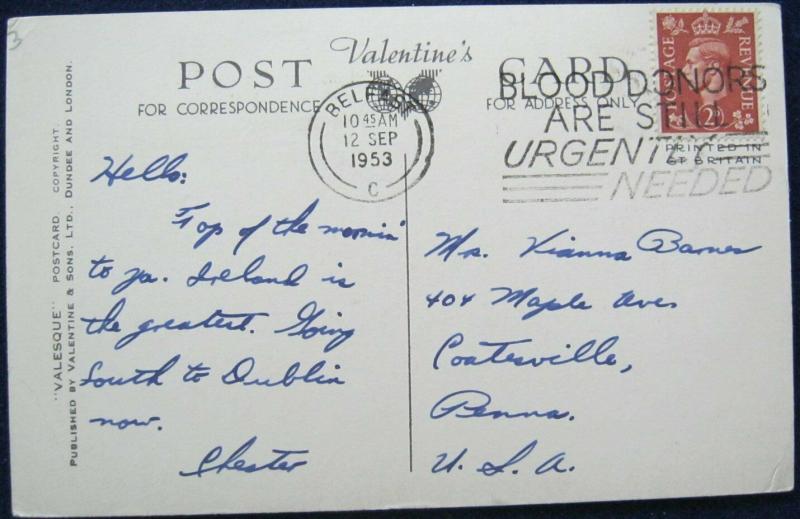 3
POST Valentine's CARD
FOR CORRESPONDENCE FOR ADDRESS ONLY
BELFAST
10 45 AM
12 SEP
1953
C
BLOOD DONORS
ARE STILL
URGENTLY
NEEDED
POSTAGE REVENUE
PRINTED IN
GT BRITAIN
"VALESQUE" POSTCARD. COPYRIGHT.
PUBLISHED BY VALENTINE & SONS. LTD., DUNDEE AND LONDON.
Hello:
Top of the mornin'
to ya. Ireland is
the greatest. Going
South to Dublin
now.
Chester
Mrs. Vianna Barnes
404 Maple Ave
Coatesville,
Penna.
U. S. A.